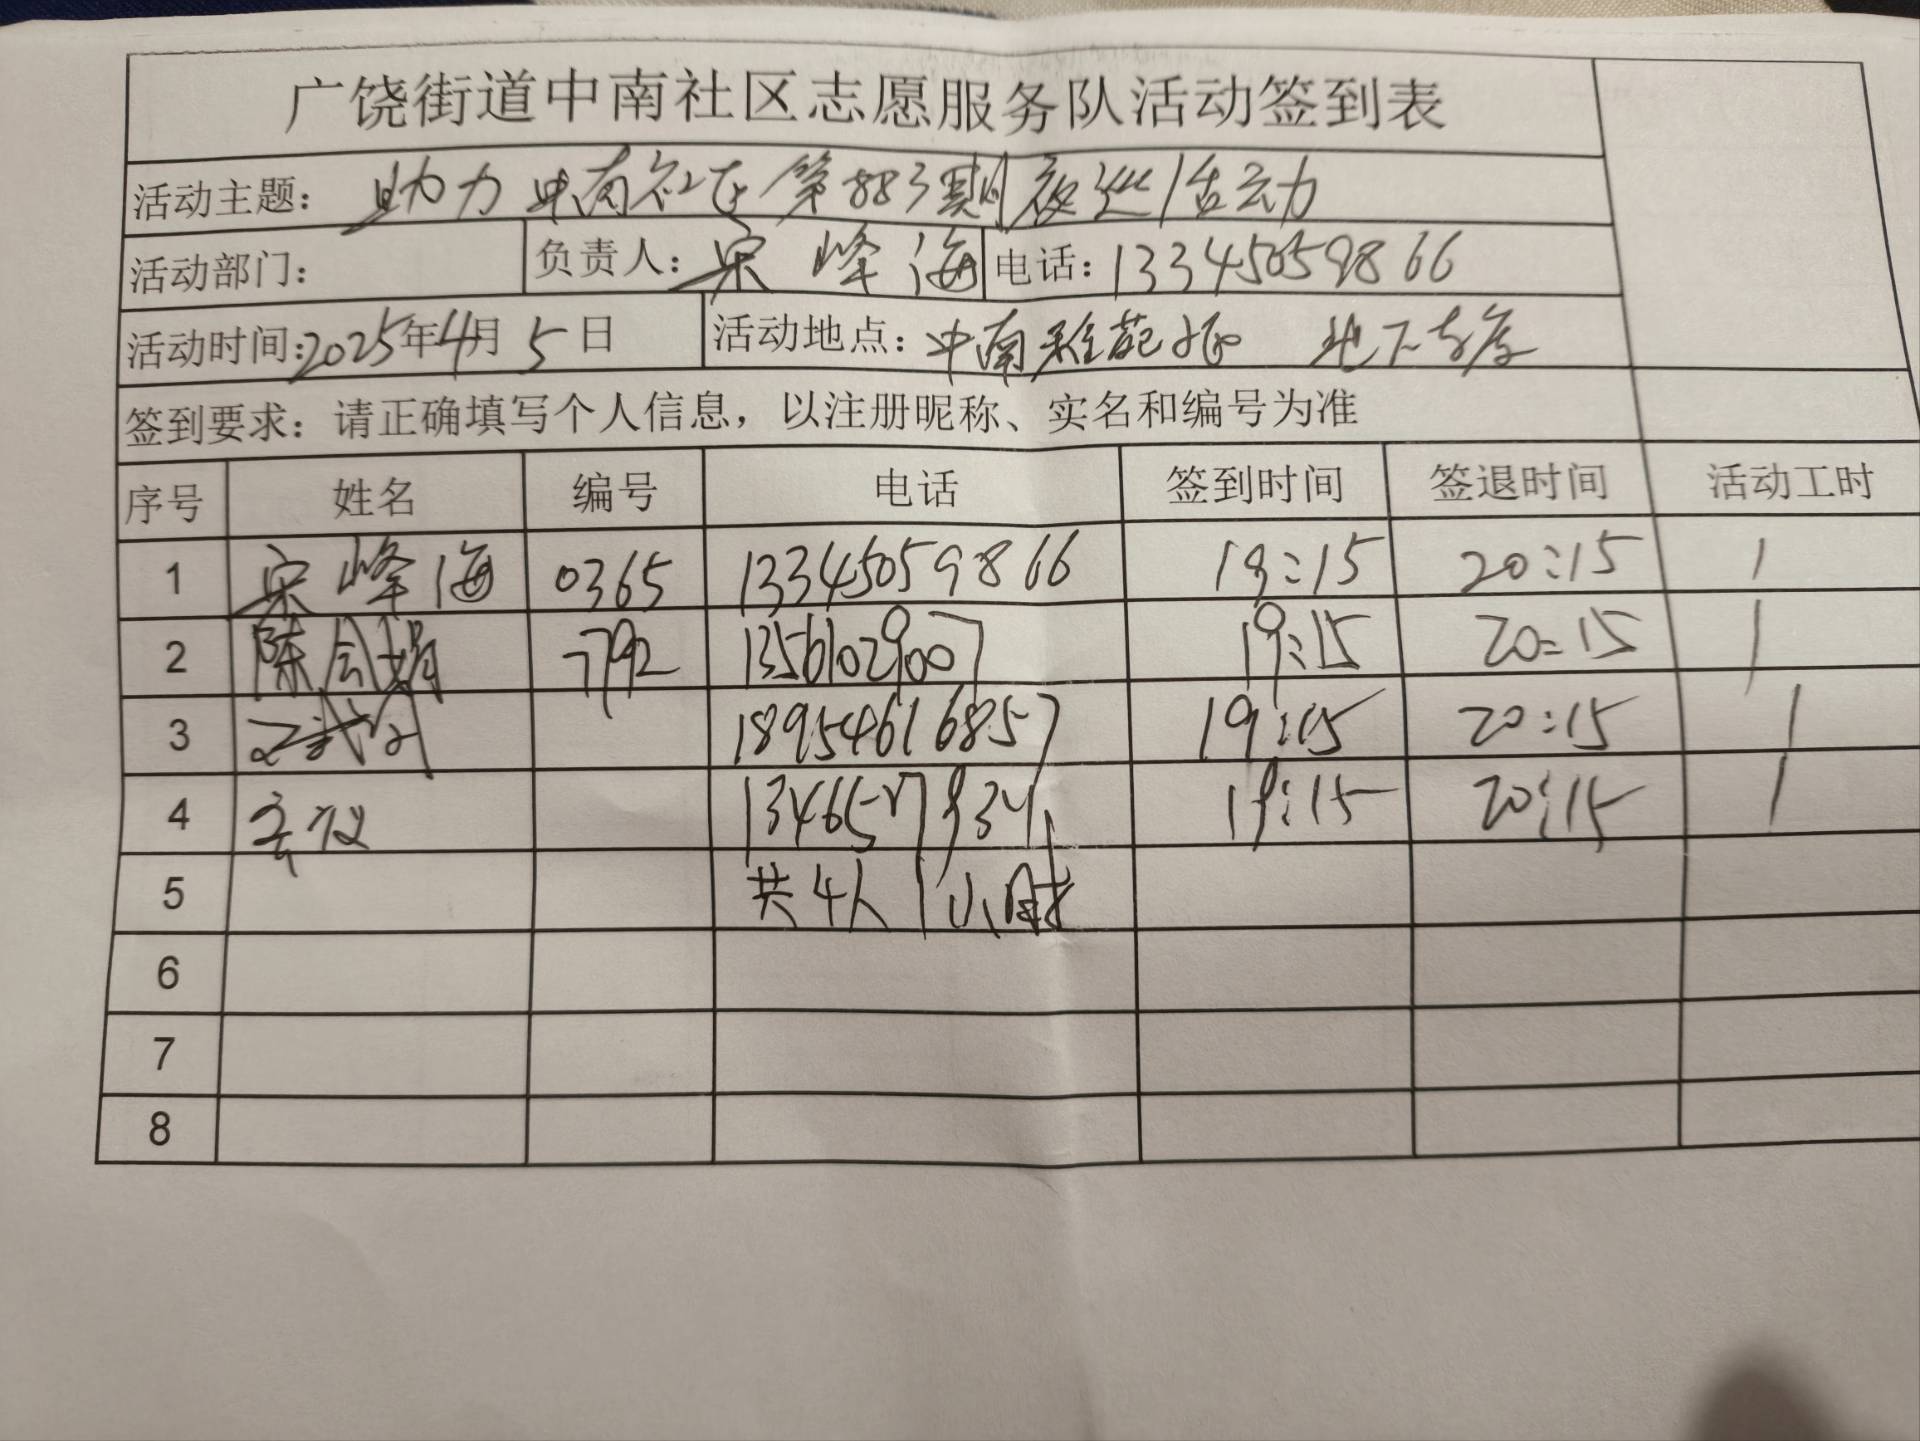 广饶街道中南社区志愿服务队活动签到表
活动主题：助力中南社区第883期夜巡活动
活动部门： 负责人：宋峰海 电话：13345059866
活动时间：2025年4月5日 活动地点：中南雅苑 地下车库
签到要求：请正确填写个人信息，以注册昵称、实名和编号为准
序号 姓名 编号 电话 签到时间 签退时间 活动工时
1 宋峰海 0365 13345059866 19:15 20:15 1
2 陈会娟 7792 13561029007 19:15 20:15 1
3 18954616857 19:15 20:15 1
4 19:15 20:15 1
5 共4人1小时
6
7
8